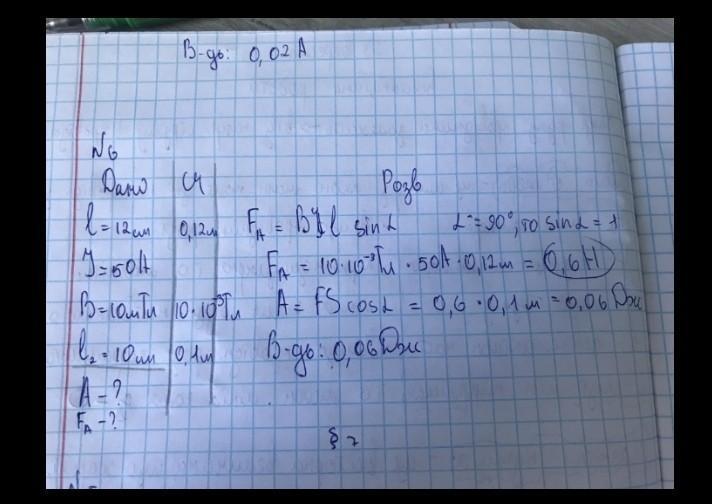 В-дь: 0,02 А
N6
Дано СИ Розв
l = 12см 0,12м F_A = BIl sin α α = 90°, то sin α = 1
I = 50А F_A = 10·10⁻³Тл · 50А · 0,12м = 0,6Н
B = 10мТл 10·10⁻³Тл A = FS cos α = 0,6 · 0,1 м = 0,06 Дж
l₂ = 10см 0,1м В-дь: 0,06 Дж
A - ?
F_A - ?
§ 7